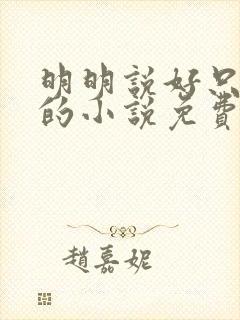 明明説好只
的小説免費
趙嘉妮